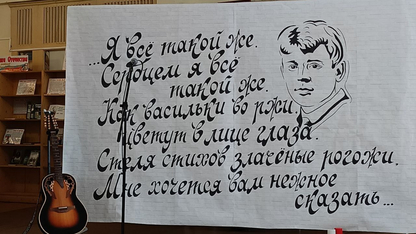 ...Я всё такой же.
Сердцем я всё
такой же.
Как васильки во ржи.
Цветут в лице глаза.
Стеля стихов злачёные рогожи.
Мне хочется вам нежное
сказать...